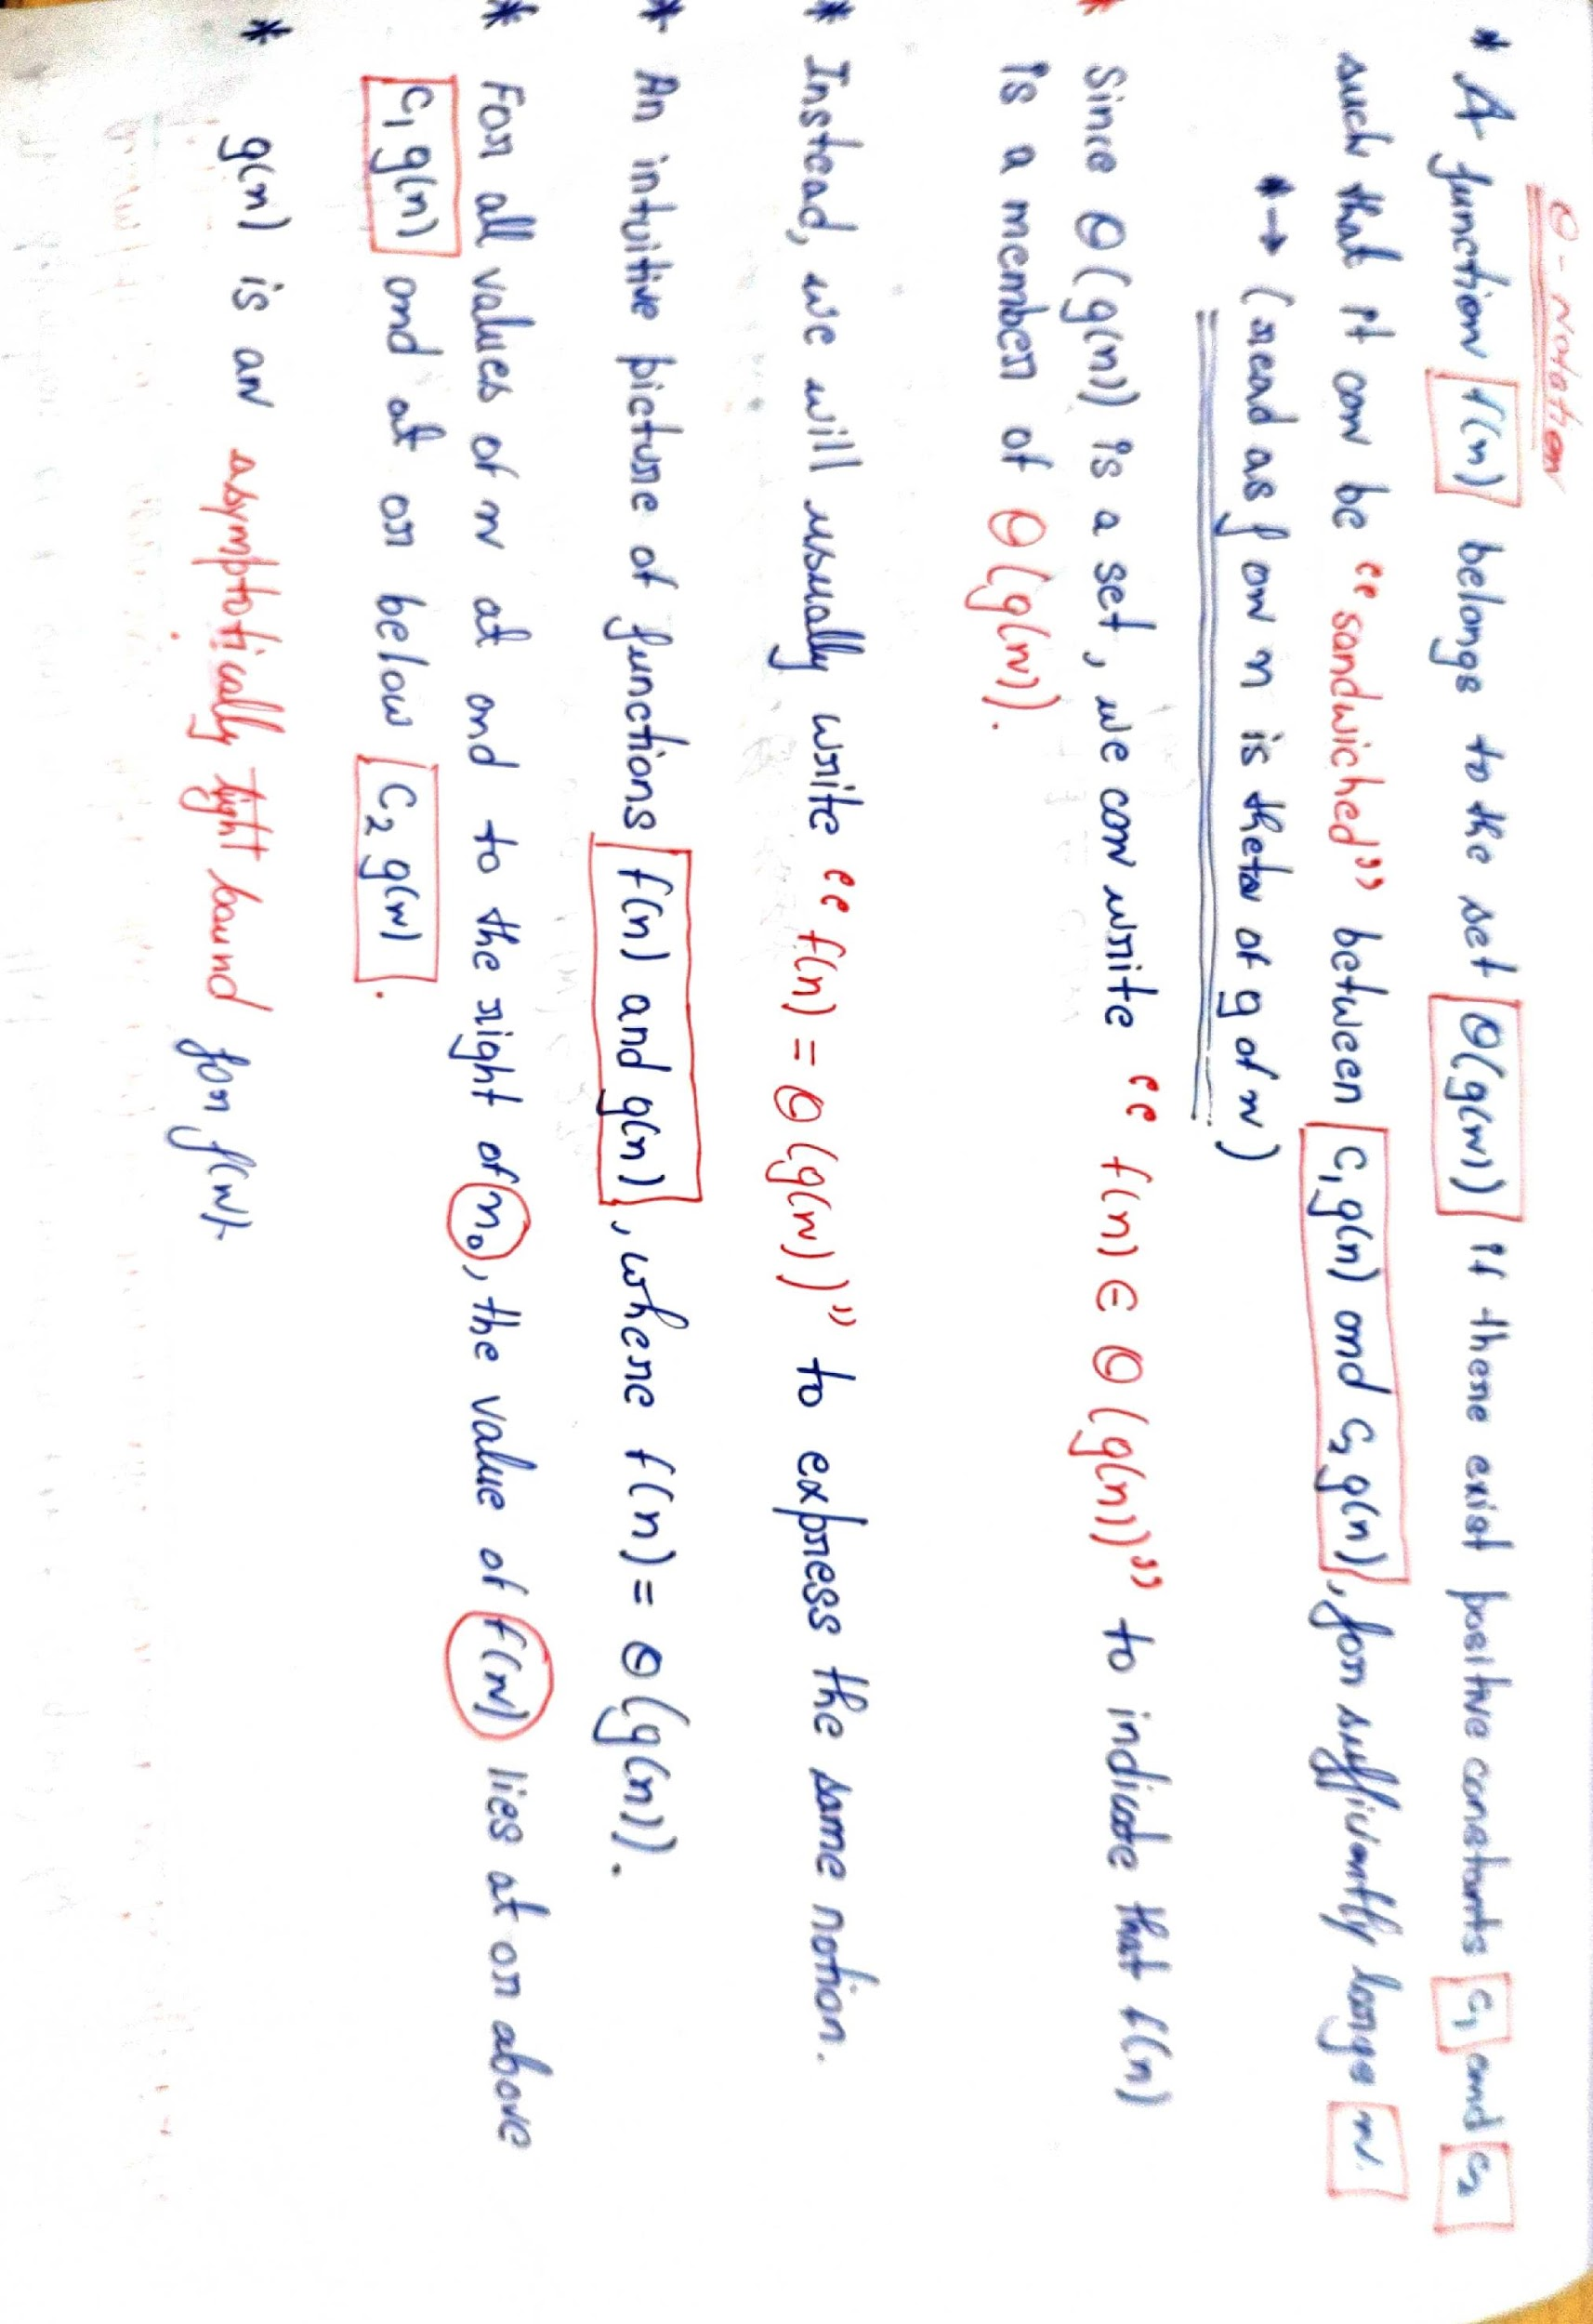 θ - Notation
* A function f(n) belongs to the set θ(g(n)) if there exist positive constants c₁ and c₂
such that it can be “sandwiched” between c₁g(n) and c₂g(n), for sufficiently large n.
*→ (read as f on n is theta of g of n)
* Since θ(g(n)) is a set, we can write “f(n) ∈ θ(g(n))” to indicate that f(n)
is a member of θ(g(n)).
* Instead, we will usually write “f(n) = θ(g(n))” to express the same notion.
* An intuitive picture of functions f(n) and g(n), where f(n) = θ(g(n)).
* For all values of n at and to the right of n₀, the value of f(n) lies at or above
c₁g(n) and at or below c₂g(n).
* g(n) is an asymptotically tight bound for f(n)